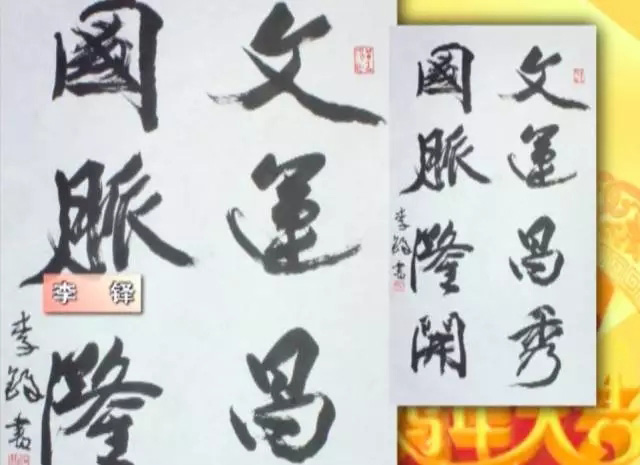 文運昌
國脈隆
李鐸書
李 铎
文運昌秀
國脈隆開
李鐸書